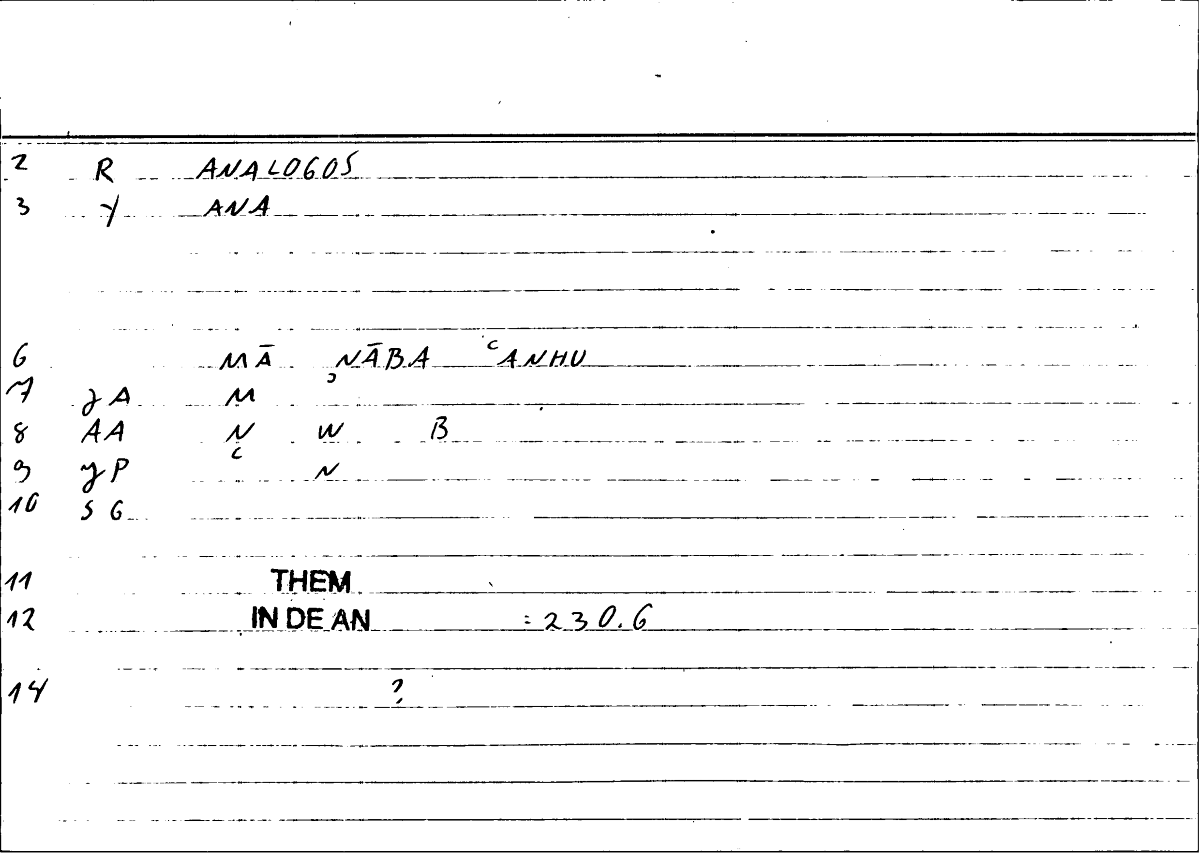 2 R ANALOGOS
3 y ANA
6 MĀ NĀBA ʿANHU
7 gA M
8 AA Nʾ W B
9 yP ʿ N
10 SG
11 THEM
12 IN DE AN :230.6
14 ?